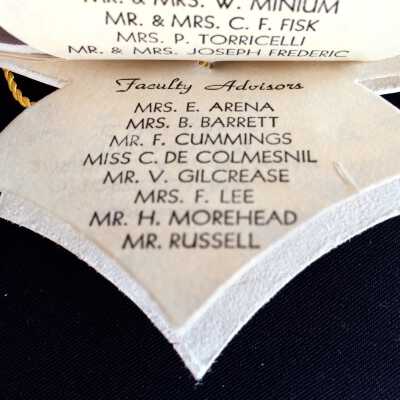 MR. & MRS. W. MINIUM
MR. & MRS. C. F. FISK
MRS. P. TORRICELLI
MR. & MRS. JOSEPH FREDERIC
Faculty Advisors
MRS. E. ARENA
MRS. B. BARRETT
MR. F. CUMMINGS
MISS C. DE COLMESNIL
MR. V. GILCREASE
MRS. F. LEE
MR. H. MOREHEAD
MR. RUSSELL